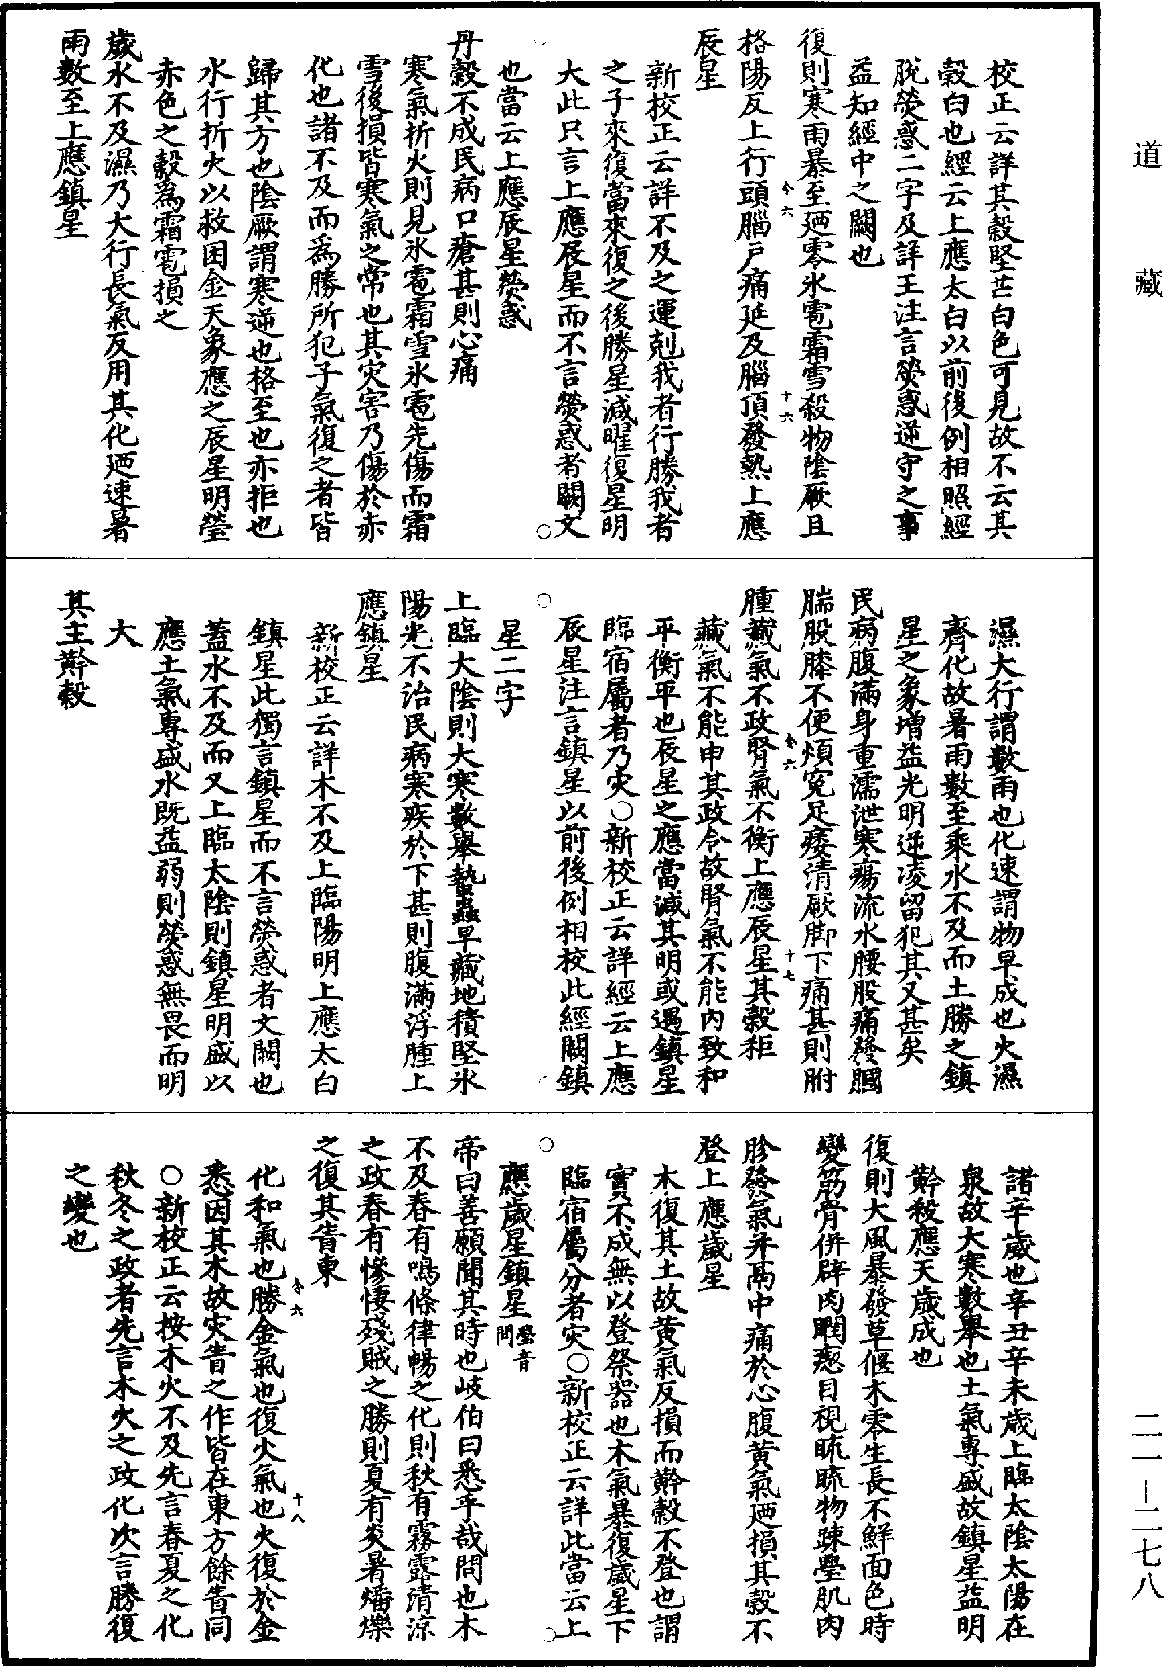 道藏
校正云詳其穀堅芒白色可見故不云其
穀白也經云上應太白以前後例相照經
脫熒惑二字及詳王注言熒惑逆守之事
益知經中之闕也
復則寒雨暴至廼零氷雹霜雪殺物陰厥且
格陽反上行頭腦戶痛延及腦頂發熱上應
辰星
新校正云詳不及之運剋我者行勝我者
之子來復當來復之後勝星減曜復星明
大此只言上應辰星而不言熒惑者闕文
也當云上應辰星熒惑
丹穀不成民病口瘡甚則心痛
寒氣折火則見氷雹霜雪氷雹先傷而霜
雪後損皆寒氣之常也其灾害乃傷於赤
化也諸不及而爲勝所犯子氣復之者皆
歸其方也陰厥謂寒逆也格至也亦拒也
水行折火以救困金天象應之辰星明瑩
赤色之穀爲霜雹損之
歲水不及濕乃大行長氣反用其化廼速暑
雨數至上應鎮星
濕大行謂數雨也化速謂物早成也火濕
齊化故暑雨數至乘水不及而土勝之鎮
星之象增益光明逆凌留犯其又甚矣
民病腹滿身重濡泄寒瘍流水腰股痛發膕
腨股膝不便煩寃足痿清厥脚下痛甚則胕
腫藏氣不政腎氣不衡上應辰星其穀秬
藏氣不能申其政令故腎氣不能內致和
平衡平也辰星之應當減其明或遇鎮星
臨宿屬者乃灾○新校正云詳經云上應
辰星注言鎮星以前後例相校此經闕鎮
星二字
上臨大陰則大寒數舉蟄蟲早藏地積堅氷
陽光不治民病寒疾於下甚則腹滿浮腫上
應鎮星
新校正云詳木不及上臨陽明上應太白
鎮星此獨言鎮星而不言熒惑者文闕也
蓋水不及而又上臨太陰則鎮星明盛以
應土氣專盛水既益弱則熒惑無畏而明
大
其主黅穀
諸辛歲也辛丑辛未歲上臨太陰太陽在
泉故大寒數舉也土氣專盛故鎮星益明
黅穀應天歲成也
復則大風暴發草偃木零生長不鮮面色時
變筋骨併辟肉瞤瘛目視䀮䀮物疎璺肌肉
胗發氣并鬲中痛於心腹黃氣廼損其穀不
登上應歲星
木復其土故黃氣反損而黅穀不登也謂
實不成無以登祭器也木氣暴復歲星下
臨宿屬分者灾○新校正云詳此當云上
應歲星鎮星璺音問
帝曰善願聞其時也岐伯曰悉乎哉問也木
不及春有鳴條律暢之化則秋有霧露清涼
之政春有慘悽殘賊之勝則夏有炎暑燔爍
之復其眚東
化和氣也勝金氣也復火氣也火復於金
悉因其木故灾眚之作皆在東方餘眚同
○新校正云按木火不及先言春夏之化
秋冬之政者先言木火之政化次言勝復
之變也
二一-二七八